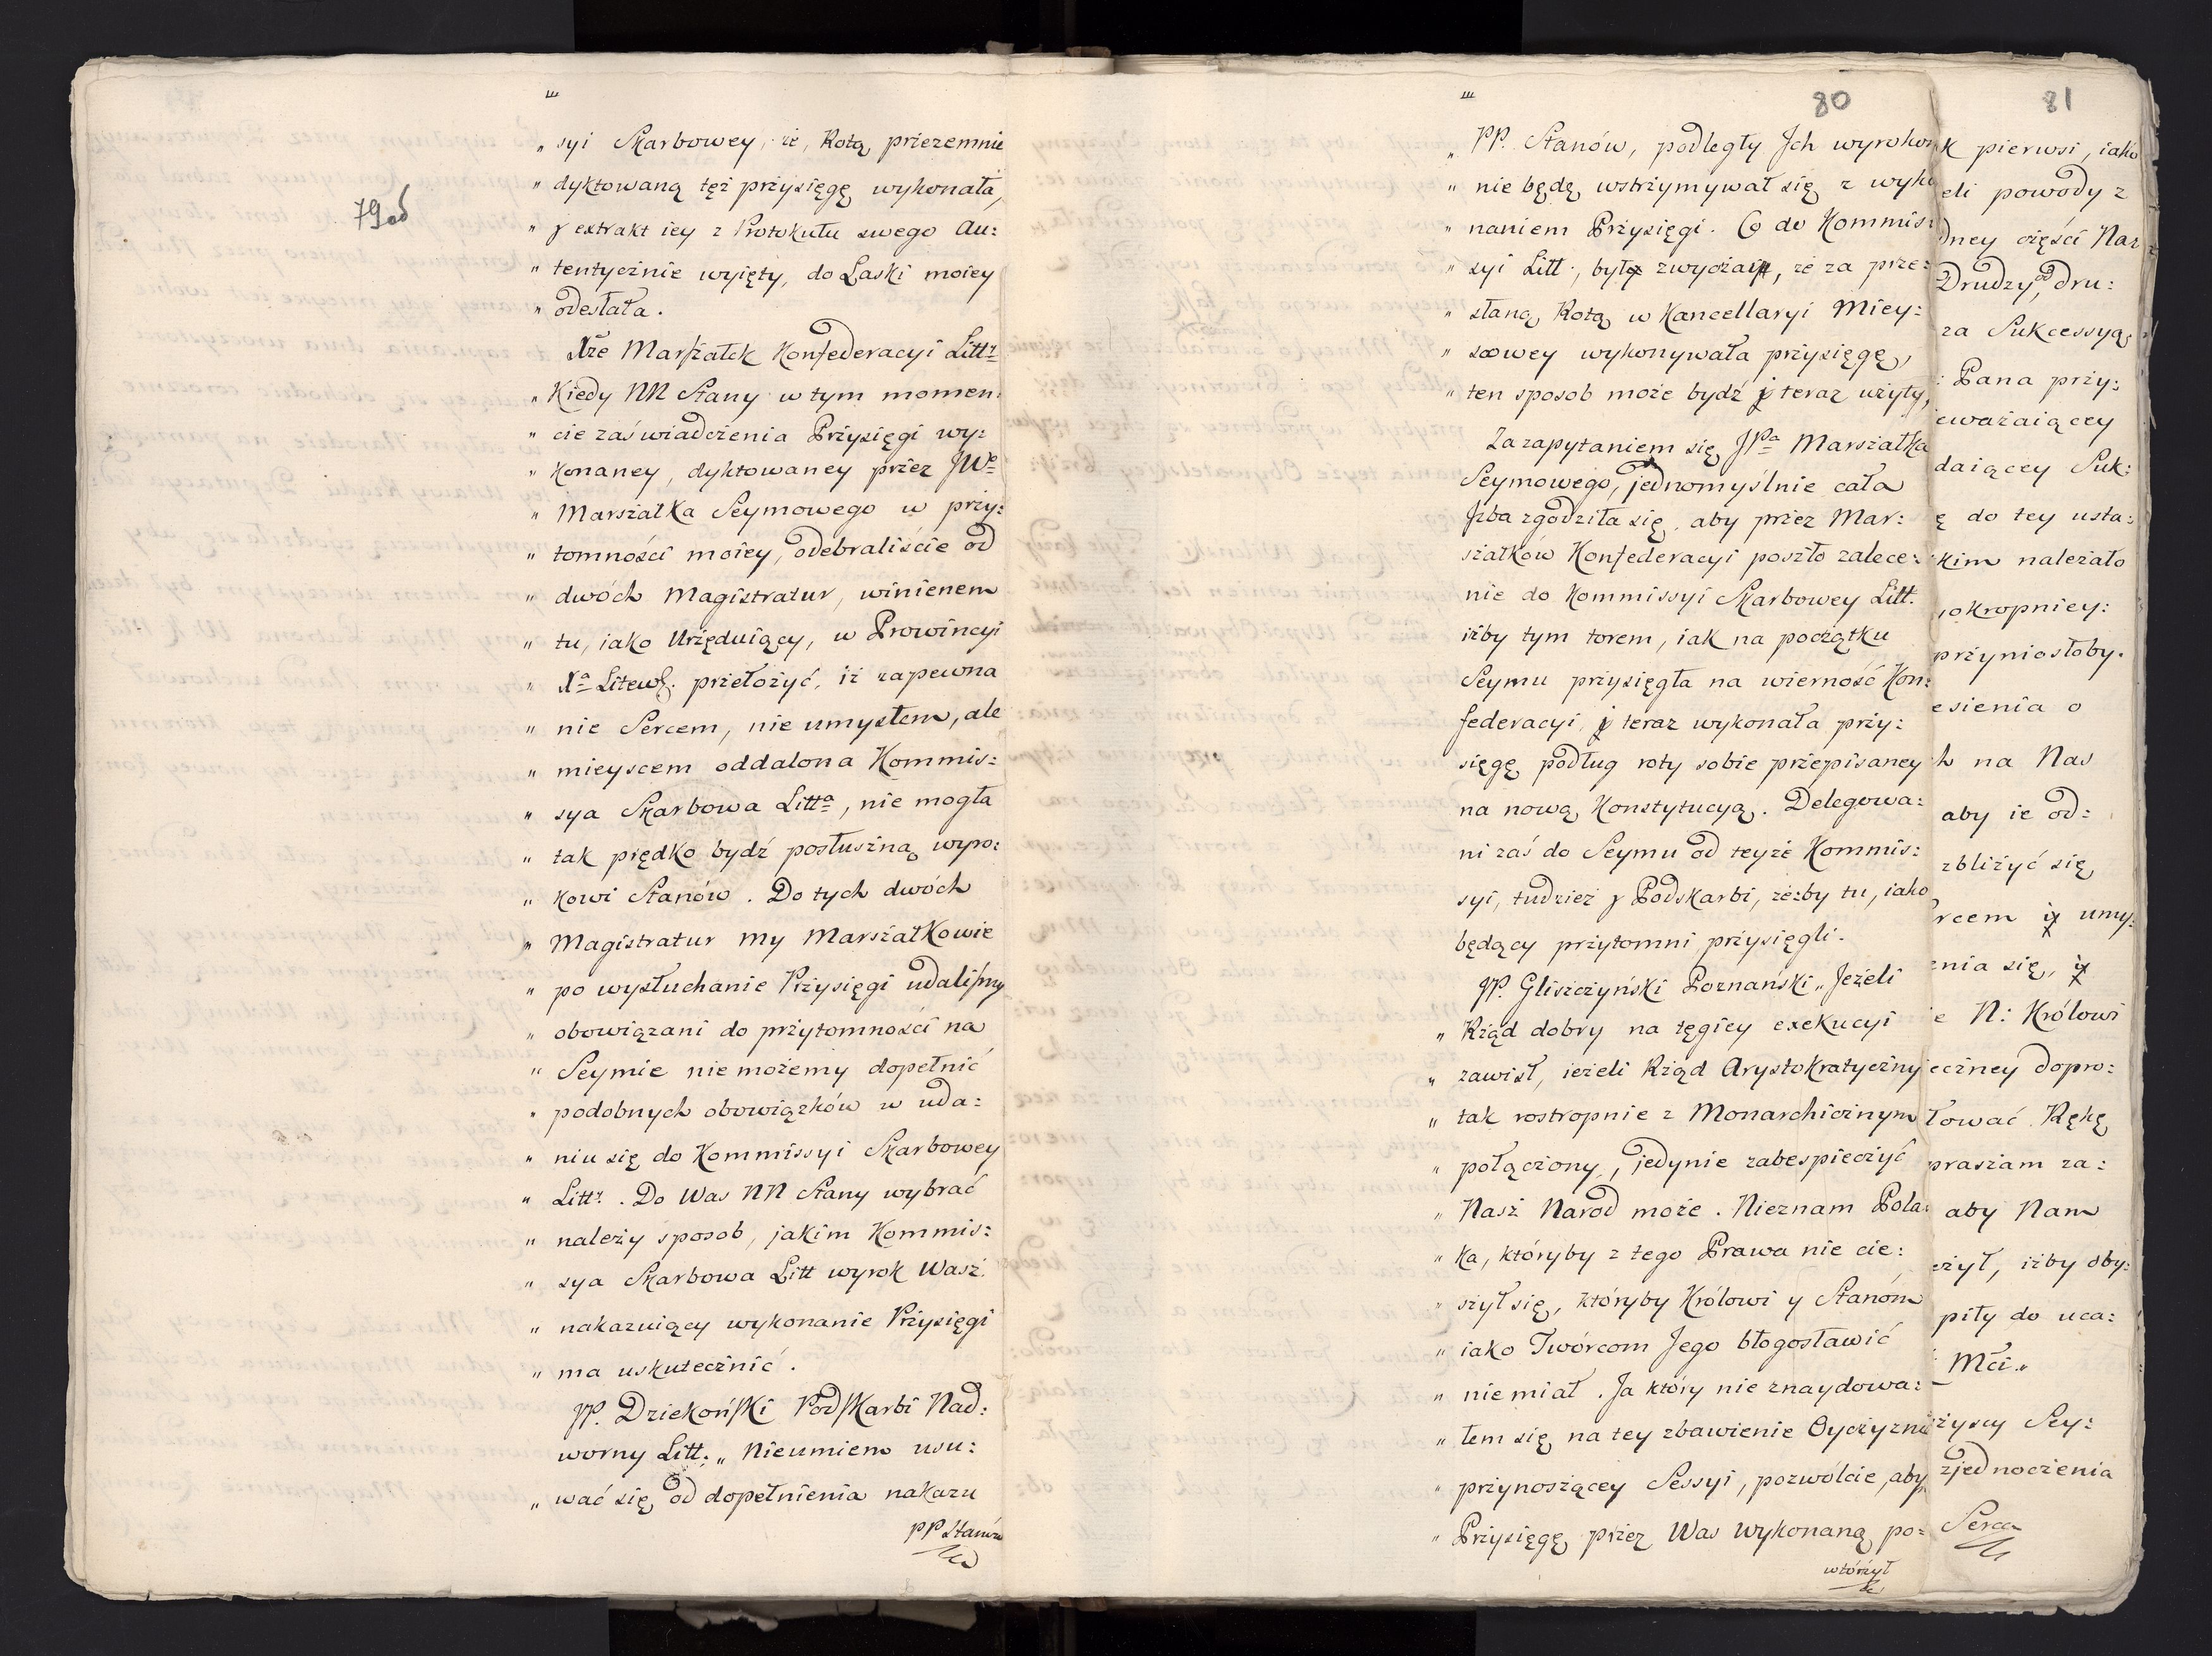 79od
„ syi Skarbowey, że, Rotą przezemnie
„ dyktowaną też przysięgę wykonała,
„ y extrakt iey z Protokułu swego Au:
„ tentycznie wyięty, do Laski moiey
„ odesłała.
Xże Marszałek Konfederacyi Littz
„ Kiedy NN Stany w tym momen:
„ cie zaświadczenia Przysięgi wy:
„ konaney, dyktowaney przez JWo
„ Marszałka Seymowego w przy:
„ tomności moiey, odebraliście od
„ dwóch Magistratur, winienem
„ tu, iako Urzęduiący, w Prowincyi
„ Xa Litews. przełożyć, iż zapewna
„ nie Sercem, nie umysłem, ale
„ mieyscem oddalona Kommis:
„ sya Skarbowa Litta, nie mogła
„ tak prędko bydź posłuszną wyro:
„ kowi Stanów. Do tych dwóch
„ Magistratur my Marszałkowie
„ po wysłuchanie Przysięgi udaliśmy
„ obowiązani do przytomności na
„ Seymie nie możemy dopełnić
„ podobnych obowiązków w uda:
„ niu się do Kommissyi Skarbowey
„ Littz. Do Was NN Stany wybrać
„ należy sposob, jakim Kommis:
„ sya Skarbowa Litt wyrok Wasz.
„ nakazuiący wykonanie Przysięgi
„ ma uskutecznić.
JP. Dziekoński Podskarbi Nad:
worny Litt: „ Nieumiem usu:
„ wać się od dopełnienia nakazu
PP Stanów
80
„ PP. Stanów, podległy Ich wyrokom
„ nie będę wstrzymywał się z wyko
„ naniem Przysięgi. Co do Kommis:
„ syi Litt:, był zwyczaj, że za prze:
„ słaną Rotą w Kancellaryi Miey:
„ scowey wykonywała przysięgę,
„ ten sposob może bydź y teraz użyty,
Za zapytaniem się JPa Marszałka
Seymowego, jednomyślnie cała
Izba zgodziła się, aby przez Mar:
szałków Konfederacyi poszło zalece:
nie do Kommissyi Skarbowey Litt.
iżby tym torem, iak na początku
Seymu przysięgła na wierność Kon:
federacyi, y teraz wykonała przy:
sięgę podług roty sobie przepisaney
na nową Konstytucyą. Delegowa:
ni zaś do Seymu od teyże Kommis:
syi, tudzież y Podskarbi, żeby tu, iako
będący przytomni przysięgli.
JP. Gliszczyński Poznański „ Jeżeli
„ Rząd dobry na tęgiey exekucyi
„ zawisł, ieżeli Rząd Arystokratyczny
„ tak rostropnie z Monarchicznym
„ połączony, jedynie zabespieczyć
„ Nasz Narod może. Nieznam Pola:
„ ka, któryby z tego Prawa nie cie:
„ szył się, któryby Królowi y Stanom
„ iako Twórcom Jego błogosławić
„ nie miał. Ja który nie znaydowa:
„ łem się na tey zbawienie Oyczyznie
„ przynoszącey Sessyi, pozwólcie, aby
„ Przysięgę przez Was wykonaną po:
wtórzył
81
k pierwsi, iako
eli powody z
dney części Nar
Drudzy od dru:
za Sukcessyą
: Pana przy:
eważaiącey
daiącey Suk:
ę do tey usta:
kim należało
okropniey:
przyniosłoby.
esienia o
h na Nas
aby ie od:
zbliżyć się
rcem y umy:
enia się, y
e N: Królowi
eczney dopro:
łować Rękę
praszam za:
aby Nam
eżył, iżby oby:
piły do uca:
Mci„
żyscy Sey:
zjednoczenia
Serca